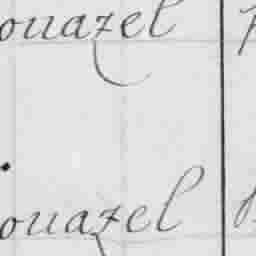 ouazel
ouazel